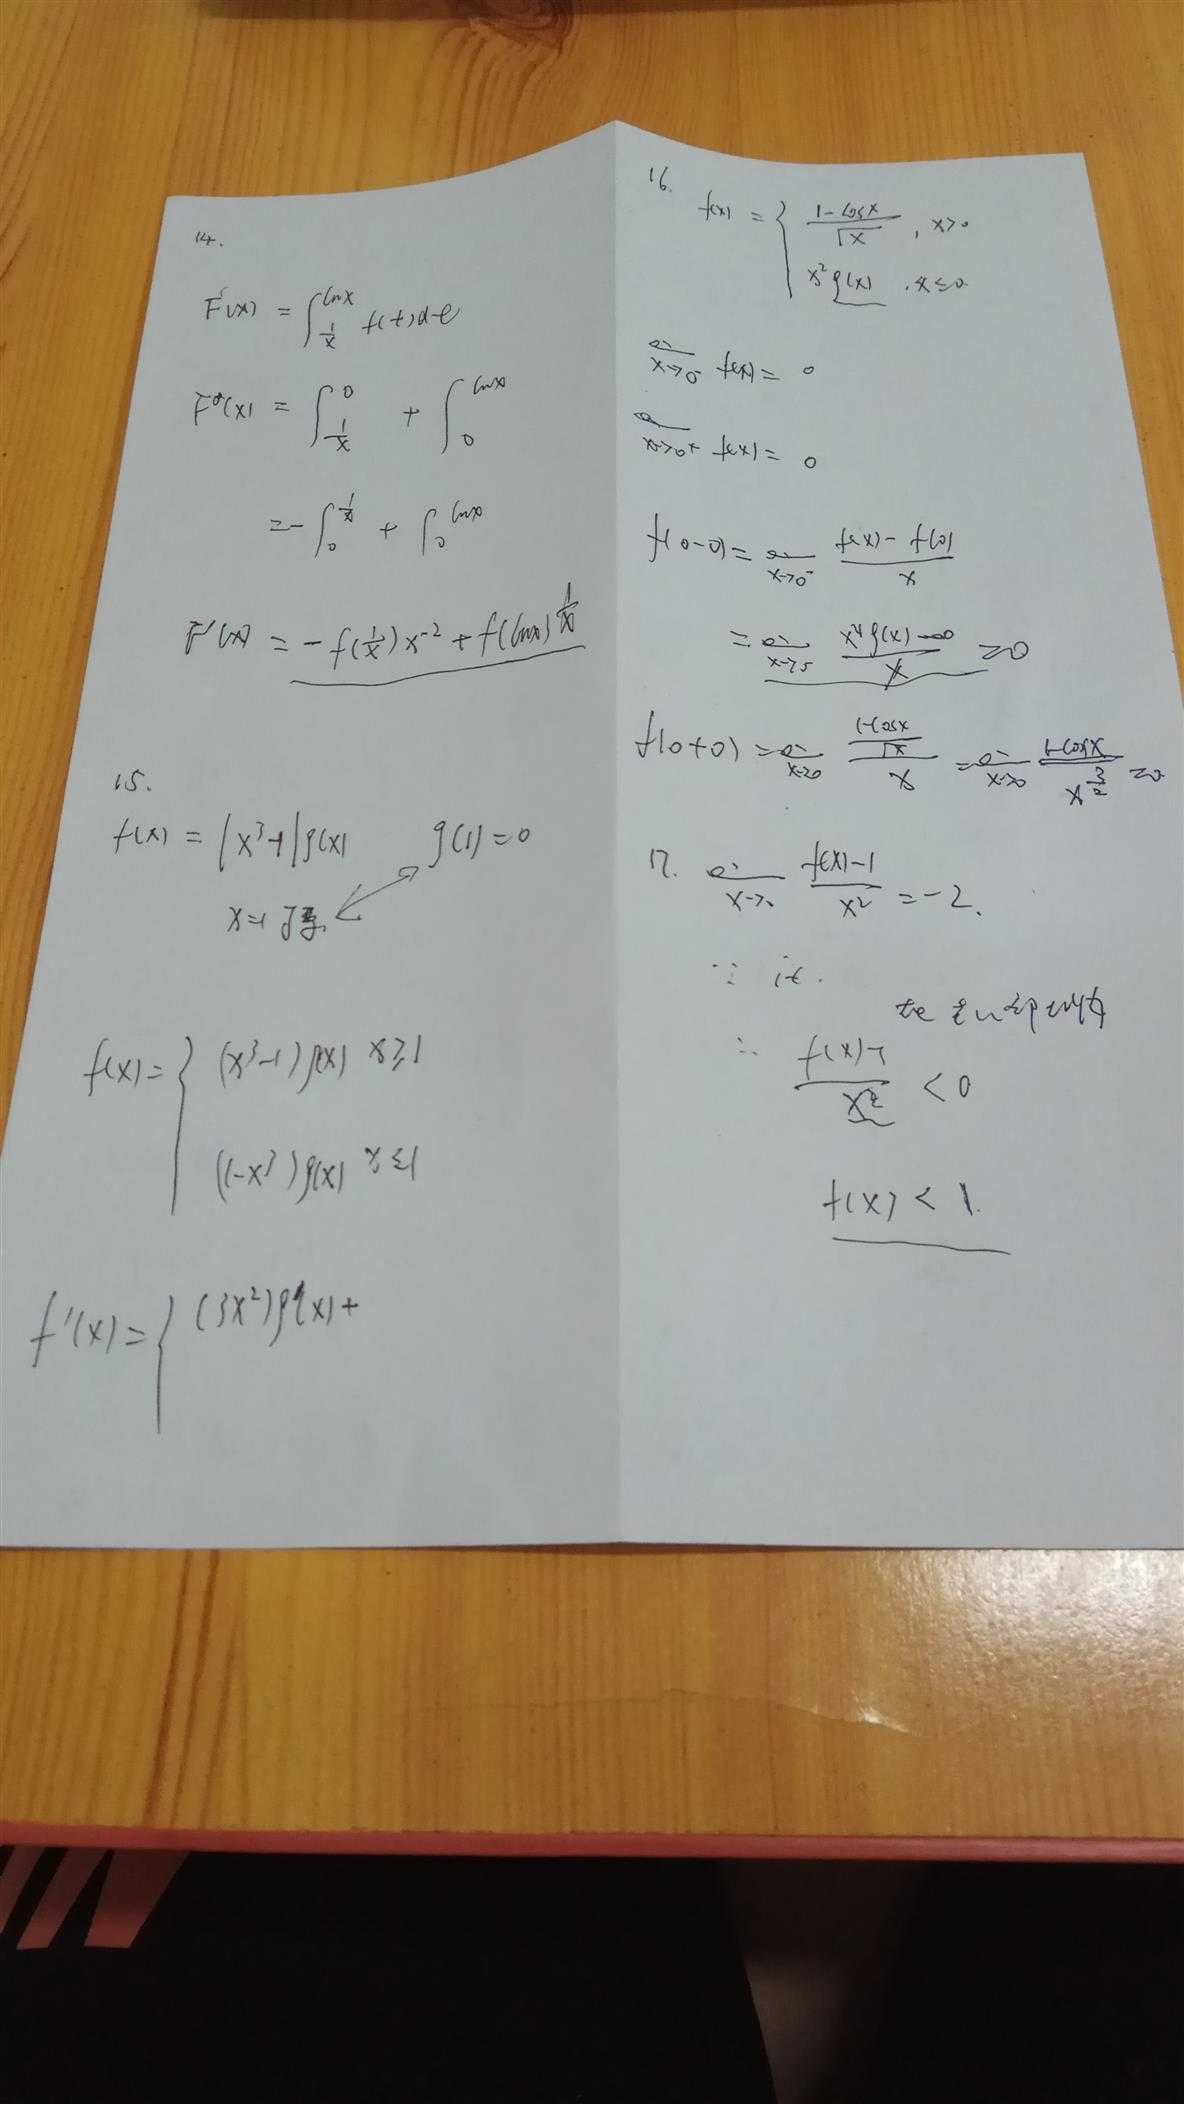 14.
F(x) = ∫_{1/x}^{lnx} f(t)dt
F(x) = ∫_{1/x}^{0} + ∫_{0}^{lnx}
= -∫_{0}^{1/x} + ∫_{0}^{lnx}
F'(x) = -f(1/x)x^{-2} + f(lnx)1/x
15.
f(x) = |x³-1|φ(x) φ(1)=0
x=1 可导
f(x) = { (x³-1)φ(x) x≥1
(1-x³)φ(x) x≤1
f'(x) = { (3x²)φ(x)+
16.
f(x) = { (1-cosx)/√x , x>0
x²φ(x) , x≤0
lim x→0⁻ f(x) = 0
lim x→0+ f(x) = 0
f(0-0) = lim x→0⁻ (f(x)-f(0))/x
= lim (x²φ(x)-0)/x =0
f(0+0) = lim x→0 ((1-cosx)/√x)/x = lim x→0 (1-cosx)/x^{3/2} =0
17. lim x→0 (f(x)-1)/x² = -2.
∵
∴ (f(x)-1)/x² < 0
f(x) < 1.